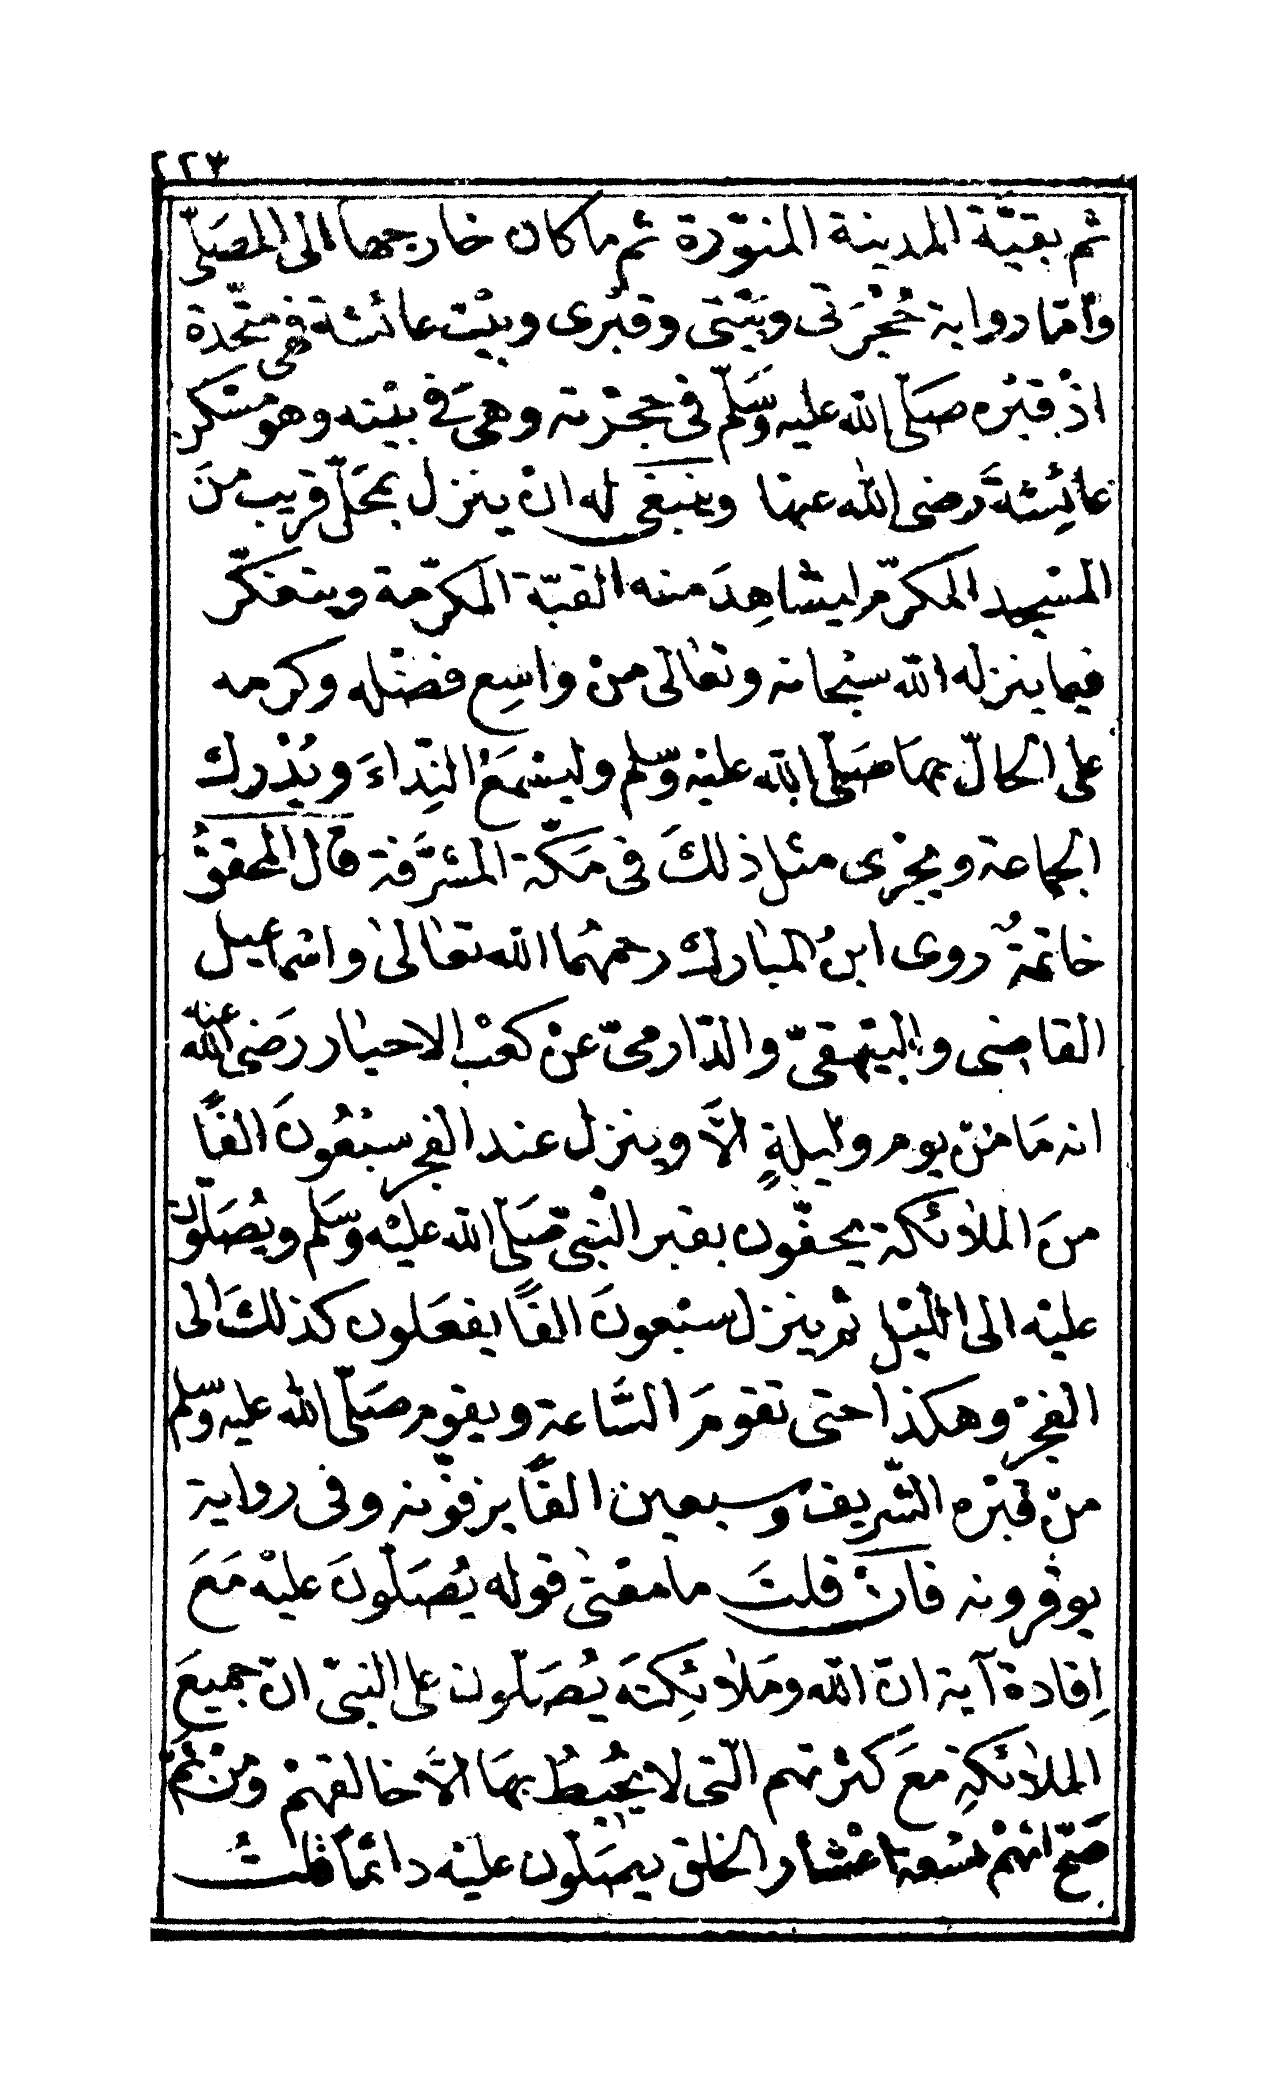 ٢٢٣
ثم بقيّة المدينة المنوّرة ثم ما كان خارجها الى المصلّى
وأمّا رواية حُجْرَتى وبَيْتى وقبْرى وبيْت عائشة فهى متّحدة
اذْ قبْره صلّى الله عليه وسَلّم فى حجْرته وهىَ فى بيْته وهو مسْكن
عائِشةَ رضى الله عنها وينبغى له انْ ينزل بمحَلّ قريب منَ
المسْجد المكرّم ليشاهِدَ منه القبّة المكرّمة ويتفكّر
فيما ينزله الله سبْحانه وتعٰالى منْ واسِع فضْله وكرمه
على الحالّ بهَا صَلّى الله عليْه وسّلم وليسْمَعَ النِداءَ ويُدْرك
الجماعة ويجْزى مثل ذلكَ فى مَكّة المشرَّفة قال المحققُ
خاتمةٌ روى ابنُ المبٰارك رحمهُما الله تعٰالىٰ واسْماعيل
القاضى والبيْهقىّ والدّارمىّ عنْ كعْب الاحبٰار رَضى الله عنه
انه مَا منْ يوم وليلةٍ الاَّ وينزل عند الفجر سبْعُونَ الفًا
منَ الملٰائكة يحفّون بقبر النّبىّ صَلّى الله عليْه وسَّلم ويُصَلّونَ
عليْه الى الليْل ثم ينزل سبْعونَ الفًا يفعَلون كذلكَ الى
الفجْر وهكذا حتى تقومَ السَّاعة ويقوم صَلّى الله عليه وسّلم
منْ قبْره الشّريف وسبعين الفًا يزفّونه وفى رواية
يوقرونه فانْ قلتَ ما معْنىٰ قوله يُصَلّونَ عليْه مَعَ
اِفادة آية انّ الله ومَلٰائِكتَه يُصَلّون على النبىّ انّ جميعَ
الملٰائكةِ معَ كثرتهم الّتى لا يحُيطُ بهَا الاَّ خالقهمْ ومنْ ثَمَّ
صَحّ انّهمْ تسْعة اعْشار الخلق يصَلّون عليْه دائمًا قلتُ